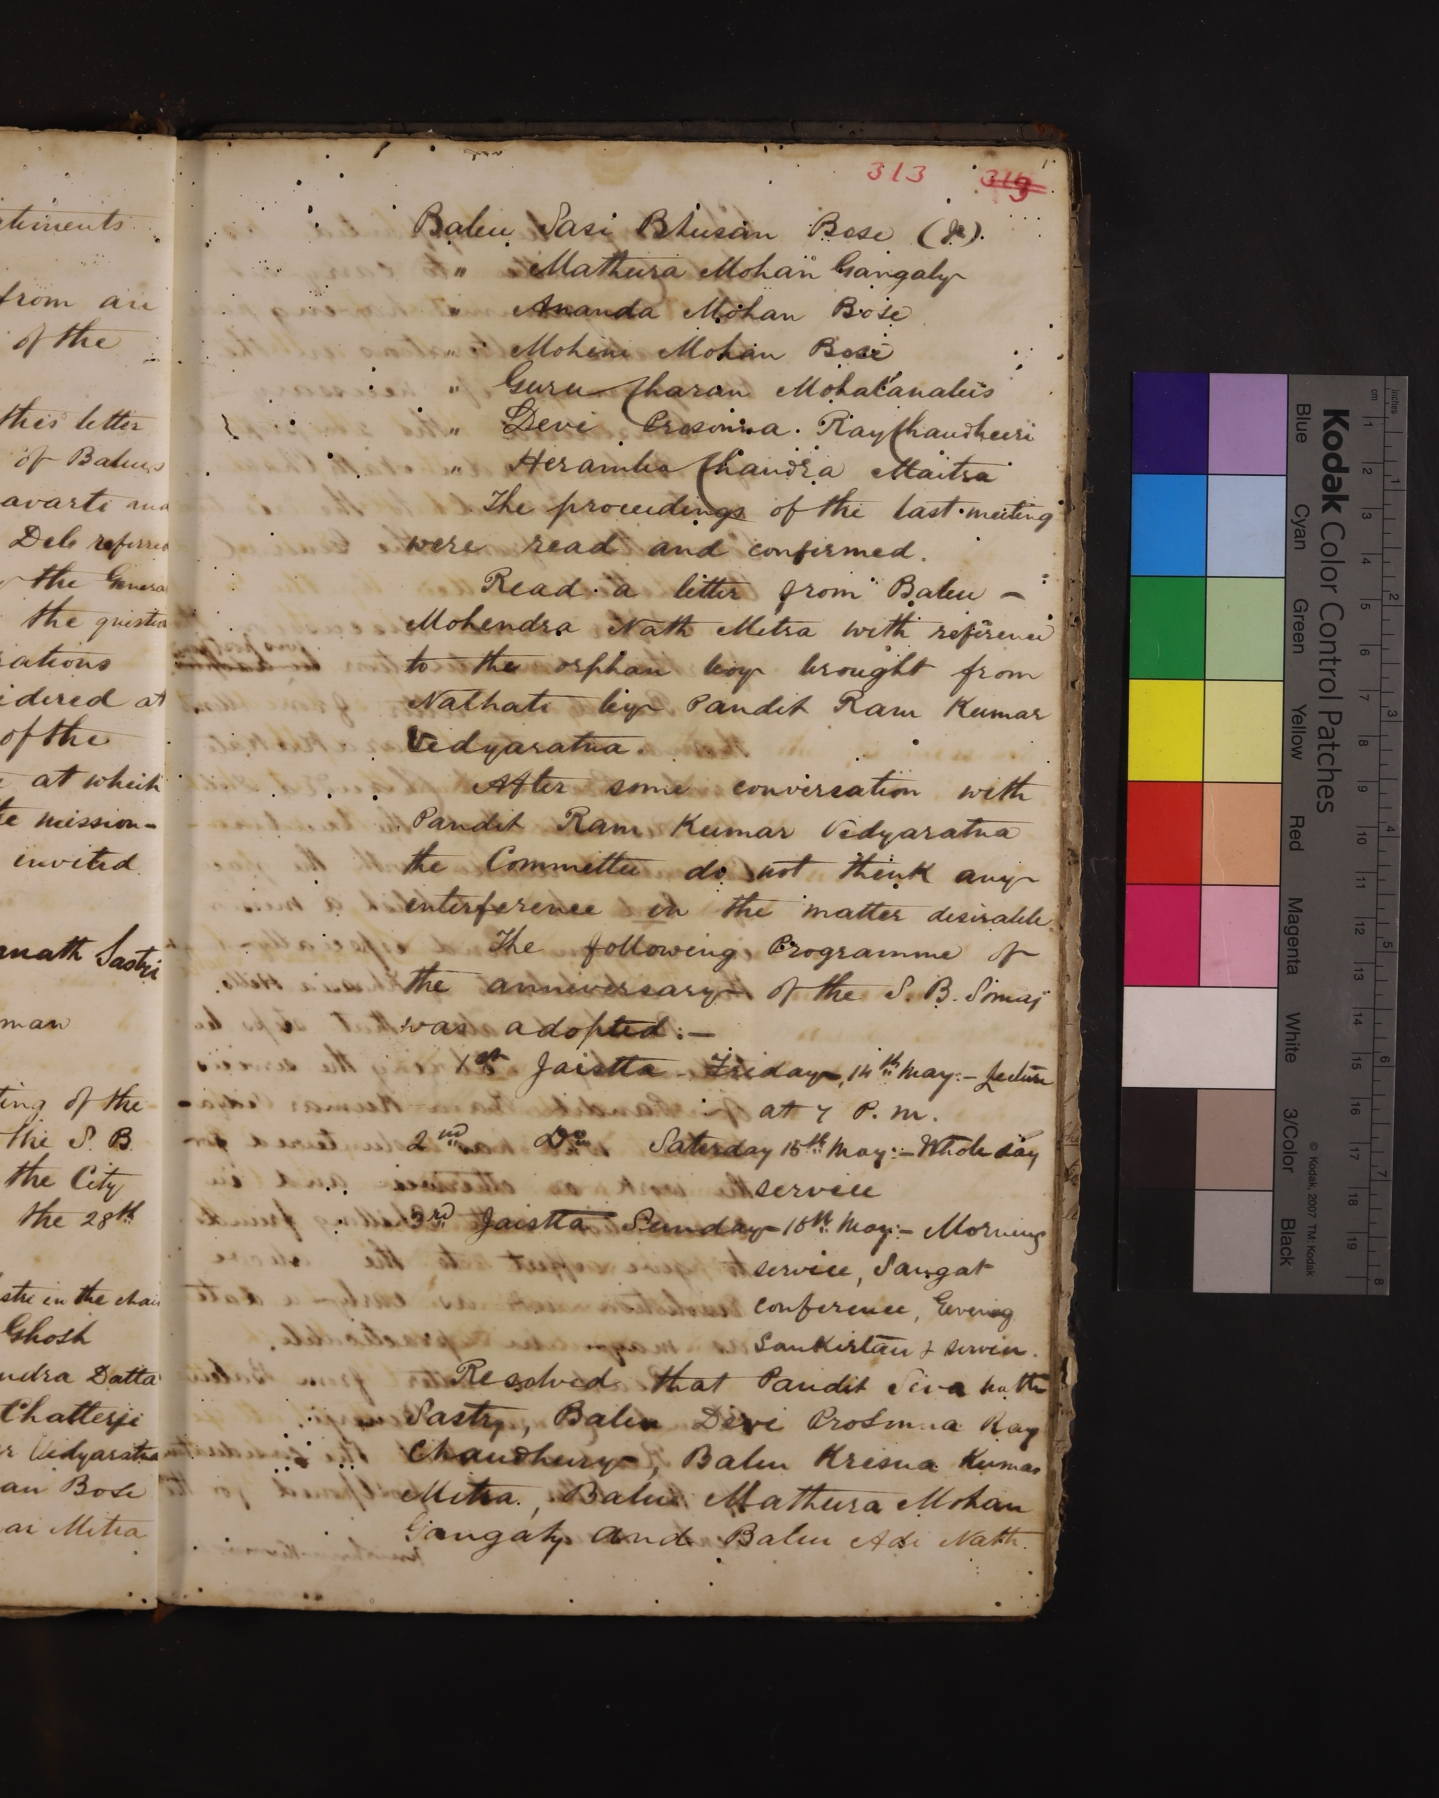 timents
from an
of the
this letter
of Babus
avarti and
Deb referred
the General
the question
rations
idered at
of the
at which
te mission-
invited
nnath Sastri
man
ting of the
the S. B.
the City
the 28th
stri in the chair
Ghosh
ndra Datta
Chatterji
r Vidyaratna
an Bose
ar Mitra
313 319
Babu Sasi Bhusan Bose (Jr).
" Mathura Mohan Gangaly
" Ananda Mohan Bose
" Mohini Mohan Bose
" Guru Charan Mohalanabis
" Devi Prosonna. Ray Chaudhuri
" Heramba Chandra Maitra
The proceedings of the last meeting
were read and confirmed.
Read a letter from Babu -
Mohendra Nath Mitra with reference
to the orphan boy brought from
Nalhati by Pandit Ram Kumar
Vidyaratna.
After some conversation with
Pandit Ram Kumar Vidyaratna
the Committee do not think any
interference in the matter desirable.
The following Programme of
the anniversary of the S. B. Somaj
was adopted:-
1st Jaistta Friday, 14th May:- Lecture
at 7 P. M.
2nd Do Saturday 15th May:- Whole day
service
3rd Jaistta Sunday 16th May:- Morning
service, Sangat
conference, Evening
Sankirtan & service.
Resolved that Pandit Siva nath
Sastry, Babu Devi Prosonna Ray
Chaudhury, Babu Krisna Kumar
Mitra, Babu Mathura Mohan
Gangaly and Babu Adi Nath
Kodak Color Control Patches
Blue Cyan Green Yellow Red Magenta White 3/Color Black
© Kodak, 2007 TM: Kodak
inches 1 2 3 4 5 6 7 8
cm 1 2 3 4 5 6 7 8 9 10 11 12 13 14 15 16 17 18 19